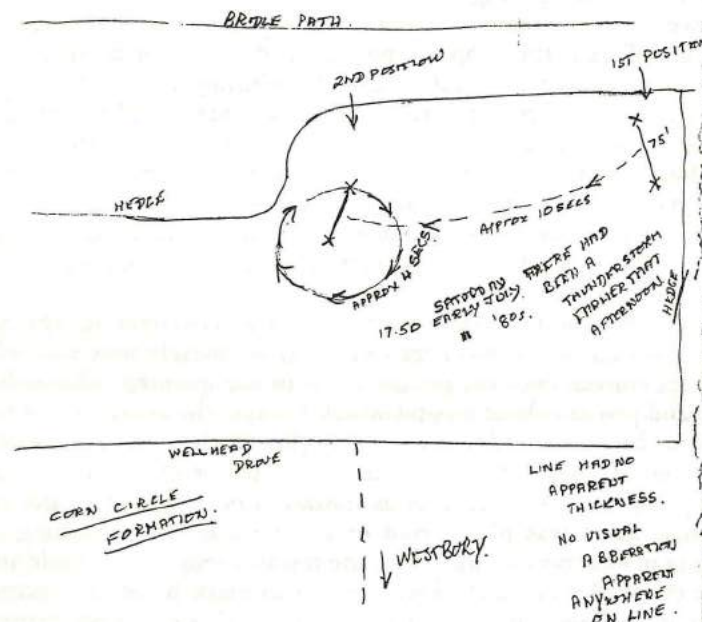 BRIDLE PATH.
2ND POSITION
1ST POSITION
75'
HEDGE
APPROX 10 SECS
APPROX 4 SECS
17.50 SATODDAY
EARLY JULY.
'80s.
THERE HAD
BEEN A
THUNDERSTORM
EARLIER THAT
AFTERNOON.
HEDGE
WELLHEAD
DROVE
CORN CIRCLE
FORMATION.
WESTBURY.
LINE HAD NO
APPARENT
THICKNESS.
NO VISUAL
ABBERATION
APPARENT
ANYWHERE
ON LINE.